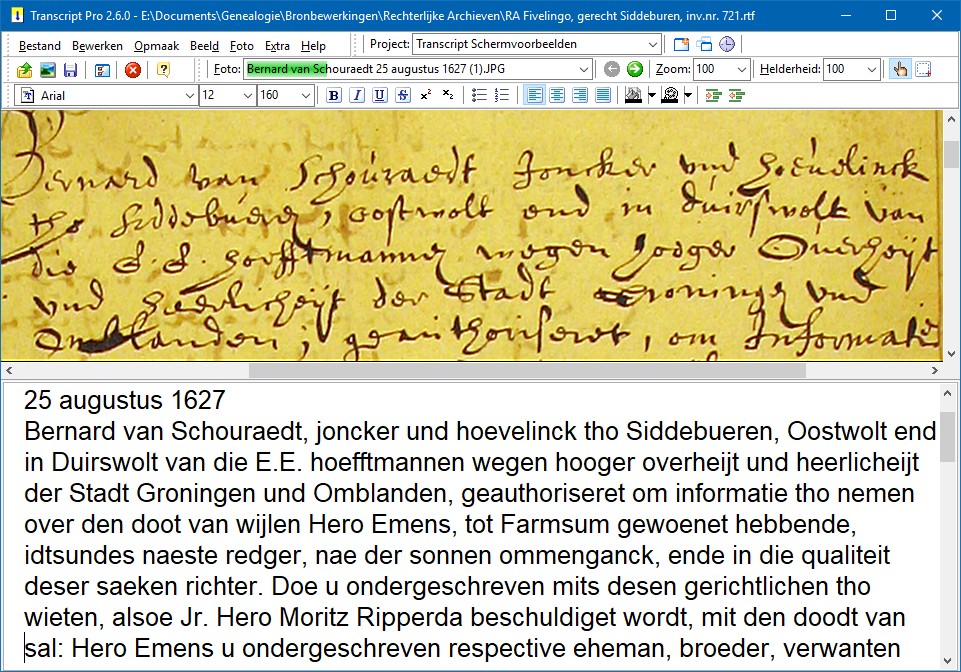 Transcript Pro 2.6.0 - E:\Documents\Genealogie\Bronbewerkingen\Rechterlijke Archieven\RA Fivelingo, gerecht Siddeburen, inv.nr. 721.rtf
Bestand Bewerken Opmaak Beeld Foto Extra Help Project: Transcript Schermvoorbeelden
Foto: Bernard van Schouraedt 25 augustus 1627 (1).JPG Zoom: 100 Helderheid: 100
Arial 12 160 B I U S x² x₂
Bernard van Schouraedt Joncker und hoevelinck
tho Siddebueren, oostwolt end in duirswolt van
die E.E. hoefftmannen wegen hooger Overheijt
und heerlicheijt der Stadt Groningen und
Omblanden, geauthoriseret, om Informatie
25 augustus 1627
Bernard van Schouraedt, joncker und hoevelinck tho Siddebueren, Oostwolt end
in Duirswolt van die E.E. hoefftmannen wegen hooger overheijt und heerlicheijt
der Stadt Groningen und Omblanden, geauthoriseret om informatie tho nemen
over den doot van wijlen Hero Emens, tot Farmsum gewoenet hebbende,
idtsundes naeste redger, nae der sonnen ommenganck, ende in die qualiteit
deser saeken richter. Doe u ondergeschreven mits desen gerichtlichen tho
wieten, alsoe Jr. Hero Moritz Ripperda beschuldiget wordt, mit den doodt van
sal: Hero Emens u ondergeschreven respective eheman, broeder, verwanten